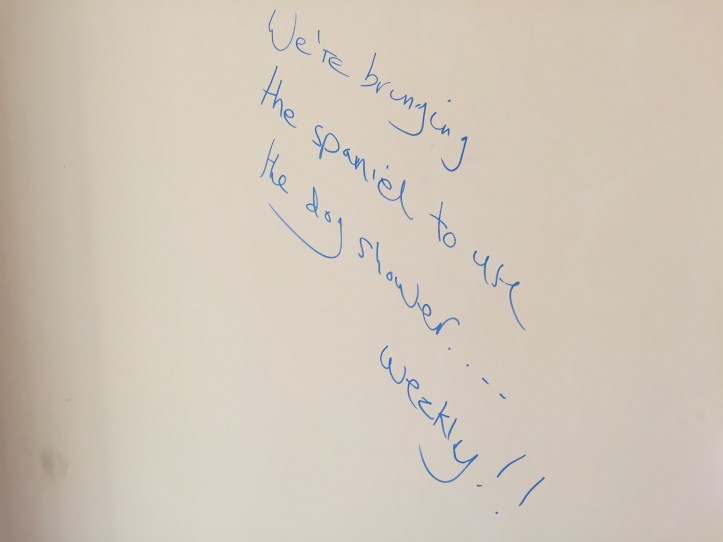 We're bringing
the spaniel to use
the dog shower....
weekly!!